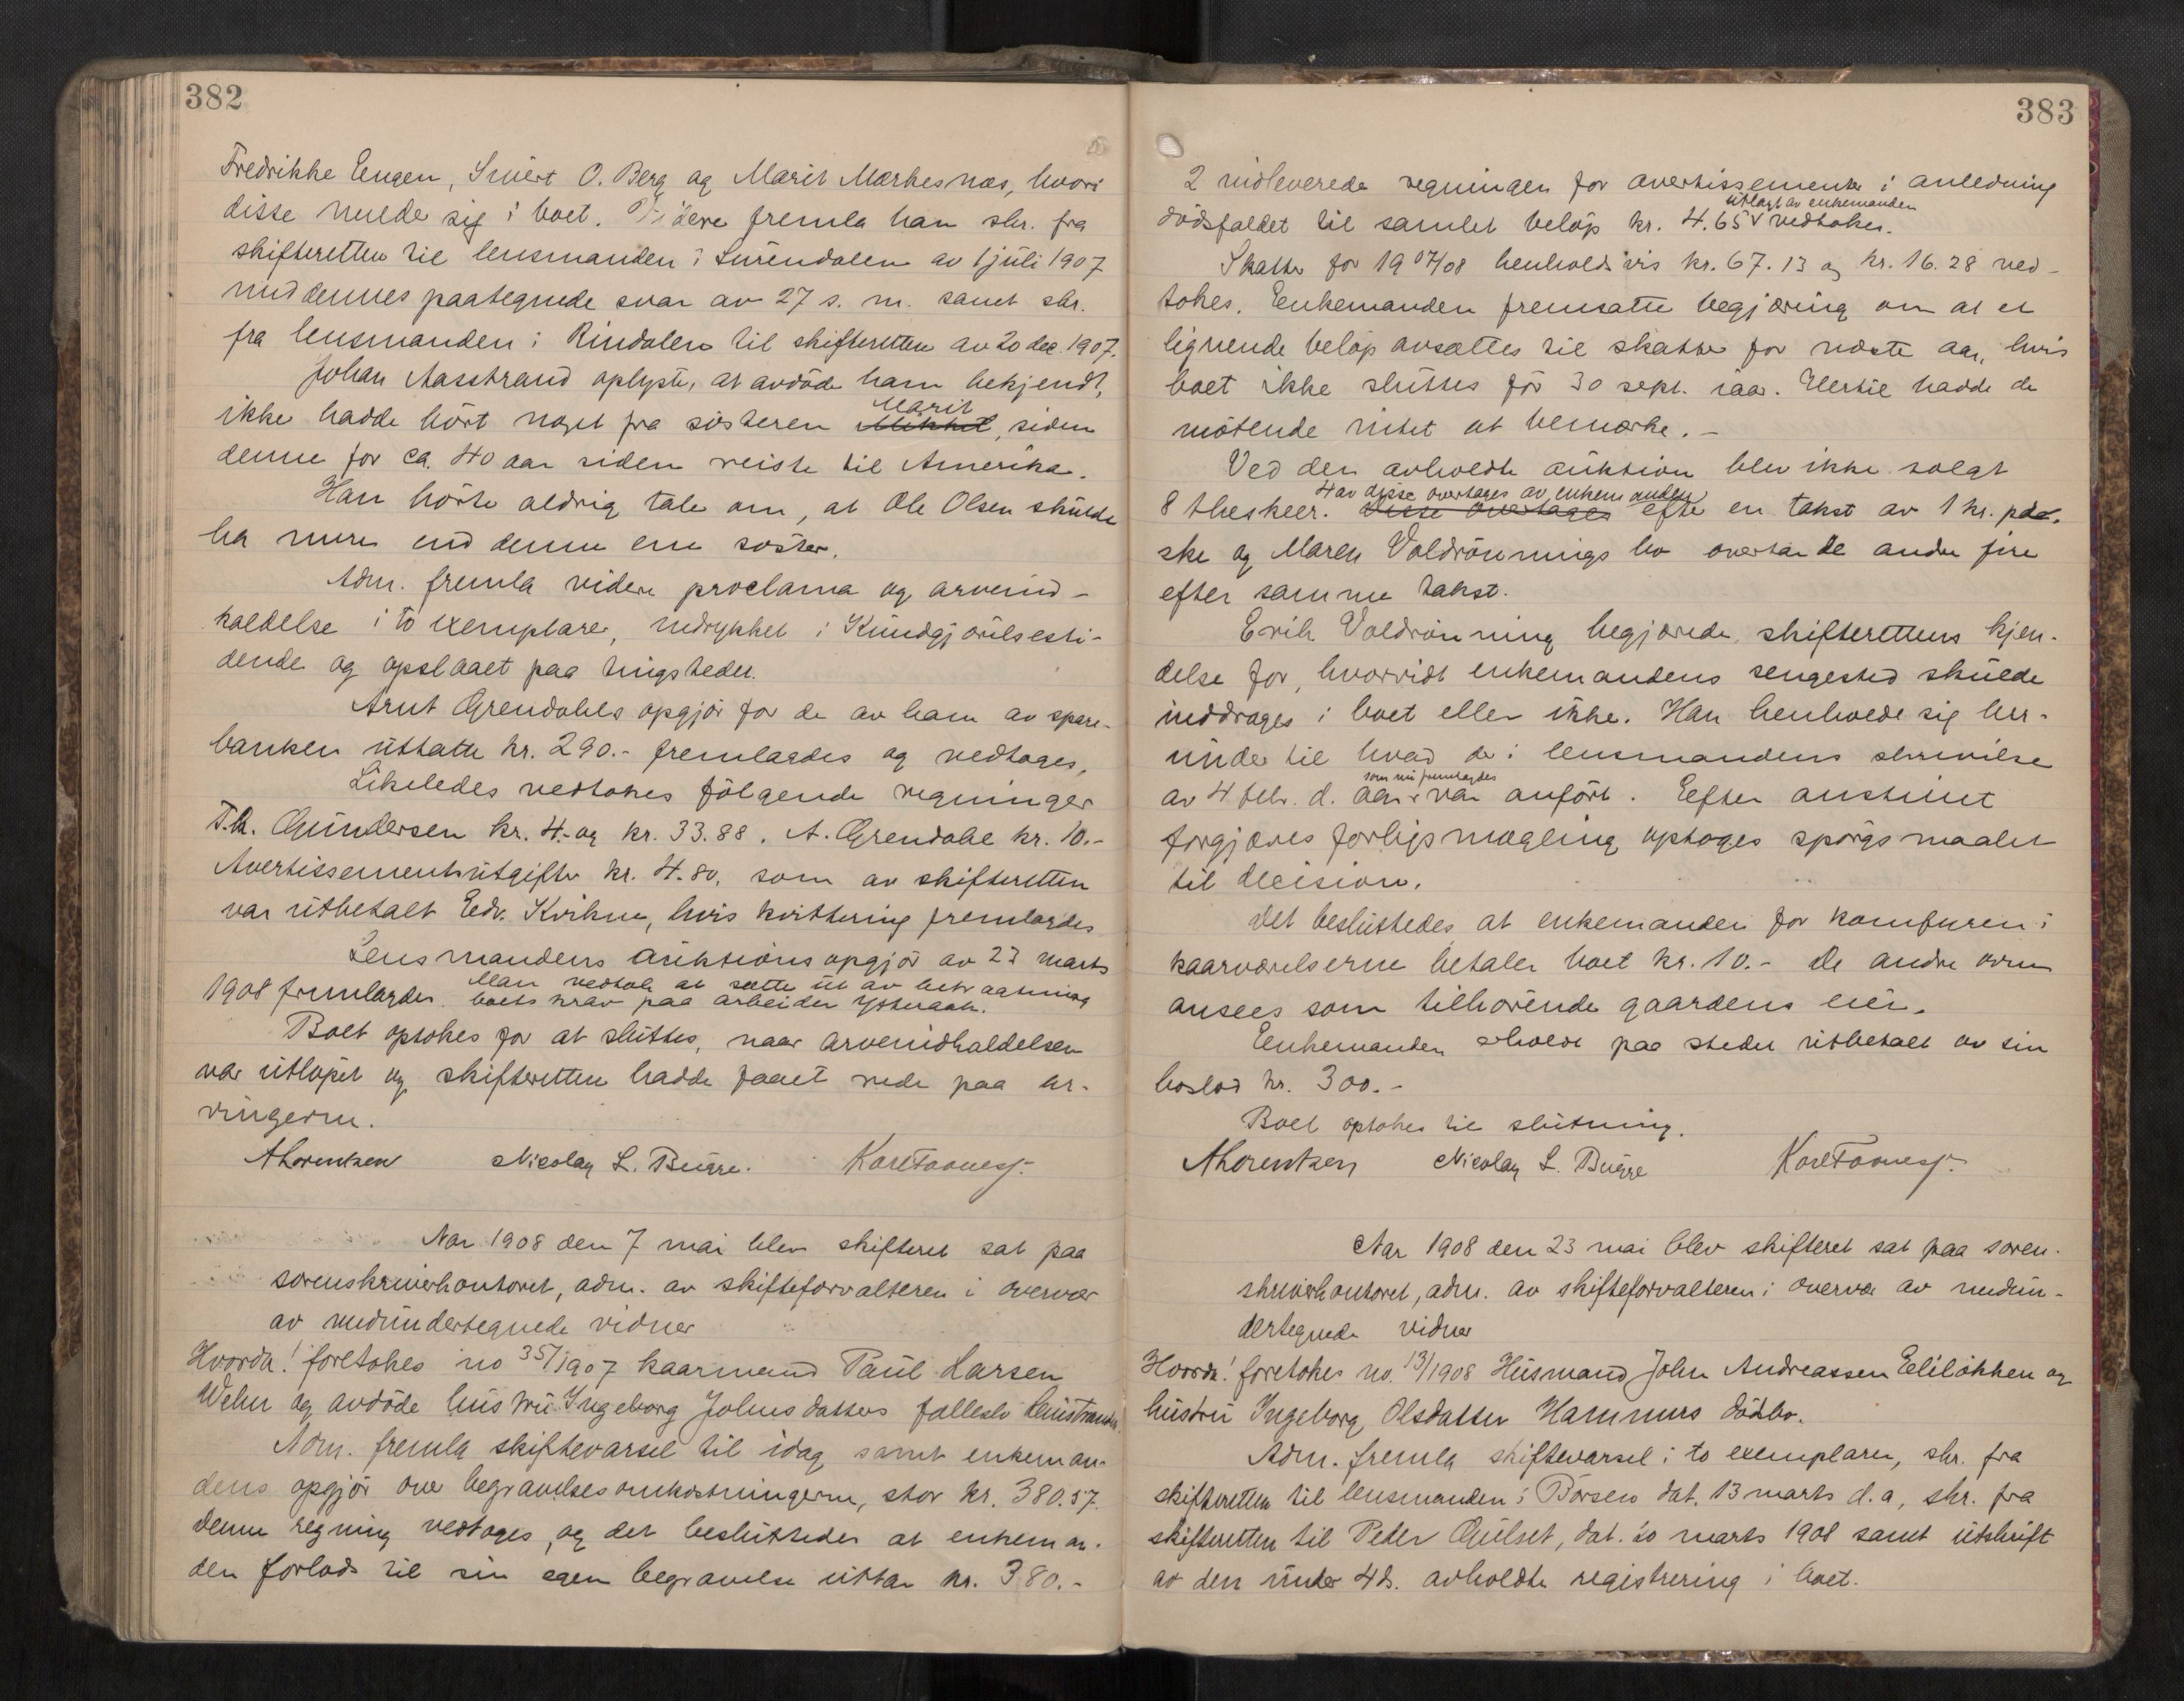 382
Fredrikke Engen, Sivert O. Berg og Marit Mærkesnæs, hvori
disse melder sig i boet. Videre fremla han skr. fra
skifteretten til lensmanden i Surendalen av 1 juli 1907
med dennes paategnede svar av 27 s. m. samt skr.
fra lensmanden i Rindalen til skifteretten av 20 dec. 1907.
Johan Aasstrand oplyste, at avdöde ham bekjendt,
ikke hadde hört noget fra sösteren Marit, siden
denne for ca. 40 aar siden reiste til Amerika.
Han hörte aldrig tale om, at Ole Olsen skulde
ha mere end denne ene söster.
Adm. fremla videre proclama og arveind-
kaldelse i to exemplarer, indrykket i Kundgjörelsesti-
dende og opslaaet paa tingstedet.
Arnt Grendahls opgjör for de av ham av spare-
banken uttatte kr. 290.- fremlagdes og vedtoges,
Likeledes vedtokes fölgende regninger
T.h. Gundersen kr. 4.- og kr. 33.88. A. Grendahl kr. 10.-
Avertissementsutgifter kr. 4.80, som av skifteretten
var utbetalt Edv. Kvikne, hvis kvittering fremlagdes
Lensmandens auktionsopgjör av 23 marts
1908 fremlagdes. Man vedtok at sætte ut av betragtning
boets krav paa arbeider Ysteraah.
Boet optokes for at sluttes, naar arveindkaldelsen
var utlöpet og skifteretten hadde faaet rede paa ar-
vingerne.
A Lorentzen Nicolay L. Bugge. Kare Foonæs.
Aar 1908 den 7 mai blev skifteret sat paa
sorenskriverkontoret, adm. av skifteforvalteren i overvær
av medundertegnede vidner
Hvorda! foretokes no 35/1907 kaarmand Paul Larsen
Wehn og avdöde hustru Ingeborg Johnsdatters fællesbo
Adm. fremla skiftevarsel til idag samt enkeman-
dens opgjör over begravelsesomkostningerne, stor kr. 380.57.
Denne regning vedtoges, og det besluttedes at enkeman-
den forlods til sin egen begravelse uttar kr. 380.-
383
2 indleverede regninger for avertissementer i anledning
dödsfaldet til samlet belöp kr. 4.65 utlagt av enkemanden vedtokes.
Skatter for 1907/08 henholdsvis kr. 67.13 og kr. 16.28 ved-
tokes. Enkemanden fremsatte begjæring om at et
lignende belöp avsættes til skatter for næste aar, hvis
boet ikke sluttes för 30 sept. iaar. Hertil hadde de
mötende intet at bemærke.-
Ved den avholdte auktion blev ikke solgt
8 theskeer. 4 av disse overtages av enkemanden Disse overtages efter en takst av 1 kr. pr.
ske og Maren Voldrönnings bo overtar de andre fire
efter samme takst.
Erik Voldrönning begjærede skifterettens kjen-
delse for, hvorvidt enkemandens sengested skulde
inddrages i boet eller ikke. Han henholdt sig her-
under til hvad der i lensmandens skrivelse
av 4 febr. d. aar som nu fremlagdes var anfört. Efter anstillet
forgjæves forligsmægling optoges spörgsmaalet
til decision.
Det besluttedes at enkemanden for komfuren i
kaarværelserne betaler boet kr. 10.- De andre ovne
ansees som tilhörende gaardens eier.
Enkemanden erholdt paa stedet utbetalt av sin
boslod kr. 300.-
Boet optokes til slutning.
A Lorentzen Nicolay L. Bugge Kare Foonæs.
Aar 1908 den 23 mai blev skifteret sat paa soren-
skriverkontoret, adm. av skifteforvalteren i overvær av medun-
dertegnede vidner
Hvorda! foretokes no. 13/1908 Husmand John Andreassen Elilökken og
hustru Ingeborg Olsdatter Hammers dödsbo.
Adm. fremla skiftevarsel i to exemplarer, skr. fra
skifteretten til lensmanden i Börsen dat. 13 marts d.a, skr. fra
skifteretten til Peder Gulset, dat. 20 marts 1908 samt utskrift
av den under 4 ds. avholdte registrering i boet.